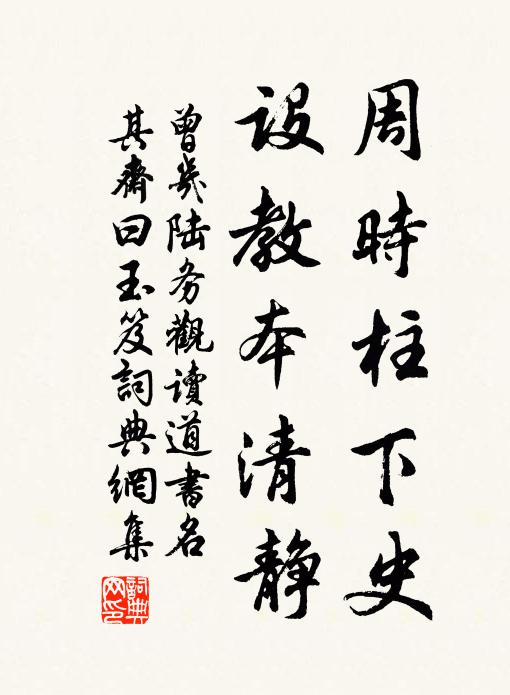 周時柱下史
設教本清靜
曾幾陆务觀讀道書名
其齋曰玉笈詞典網集
詞典网印